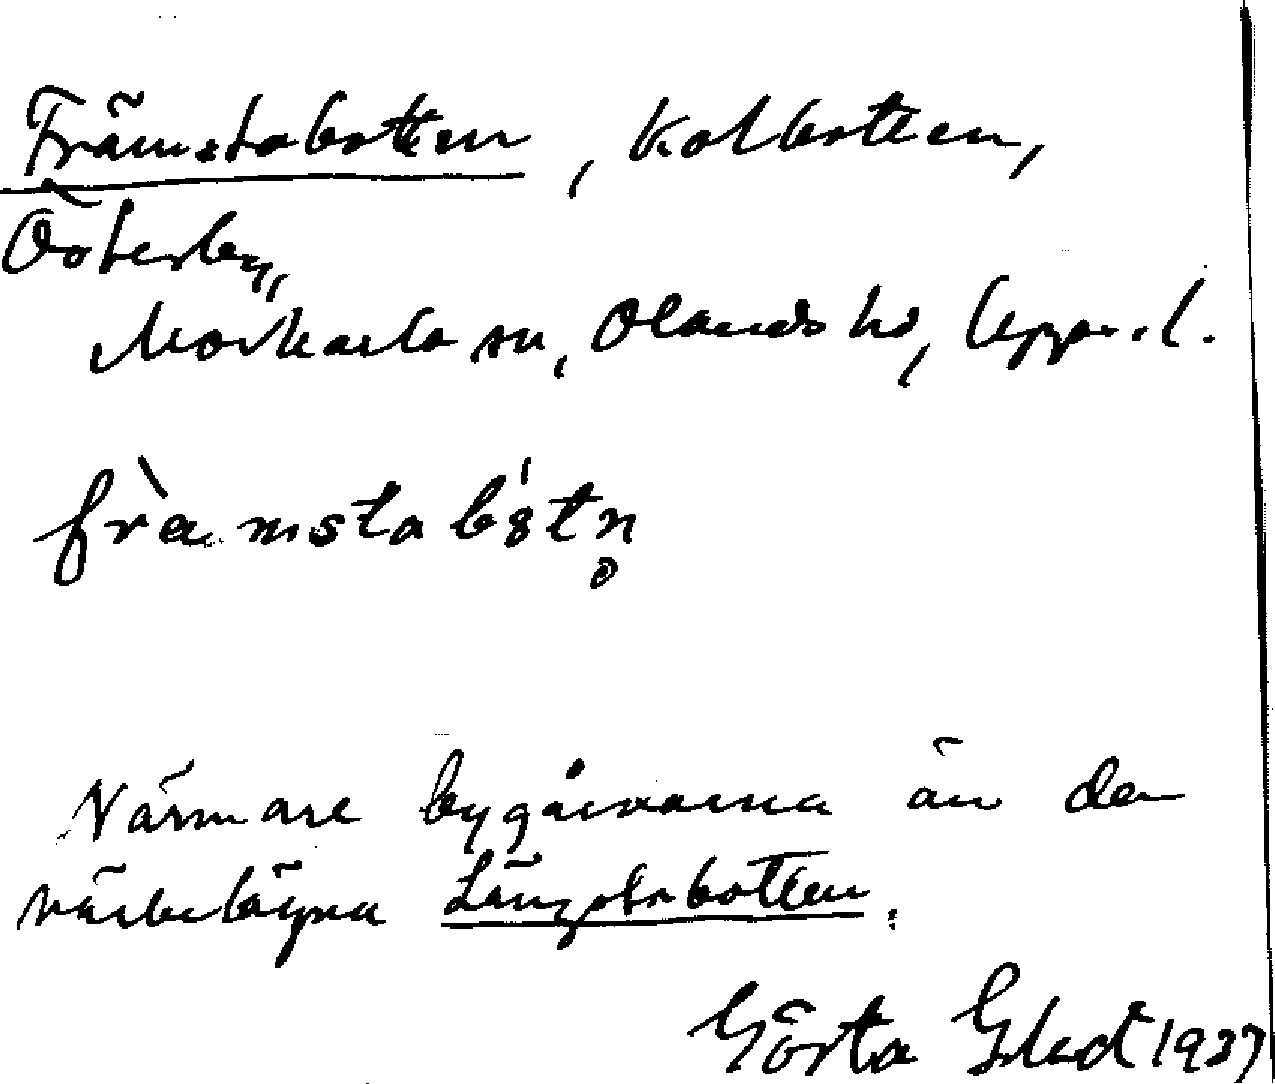 Främstabotten, Kolbotten,
Österby,
Morkarla sn, Olands hd, Upps. l.
frä̀mstabótn̥
Närmare bygårdarna än den
närbelägna Längstabotten.
Gösta Gled 1937